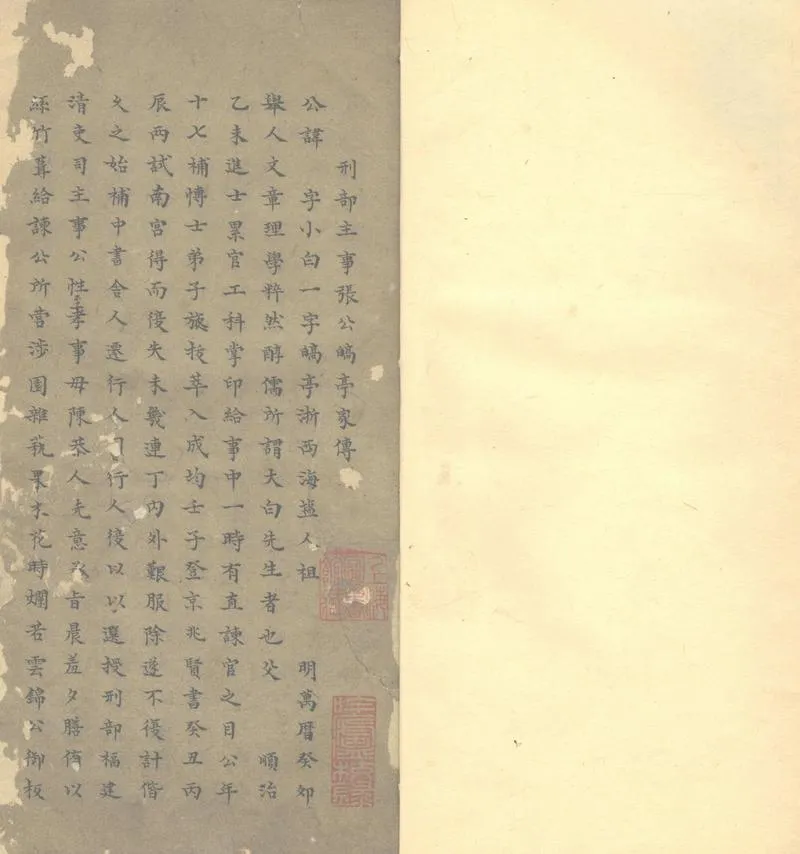 刑部主事張公皜亭家傳
公諱 字小白一字皜亭浙西海鹽人祖 明萬曆癸卯
舉人文章理學粹然醇儒所謂大白先生者也父 順治
乙未進士累官工科掌印給事中一時有直諫官之目公年
十七補博士弟子旋拔萃入成均壬子登京兆賢書癸丑丙
辰兩試南宮得而復失未幾連丁內外艱服除遂不復計偕
久之始補中書舍人遷行人司行人後以 選授刑部福建
清吏司主事公性至孝事母陳恭人先意 旨晨羞夕膳侑以
絲竹葺給諫公所營涉園雜蓺果木花時爛若雲錦公御板